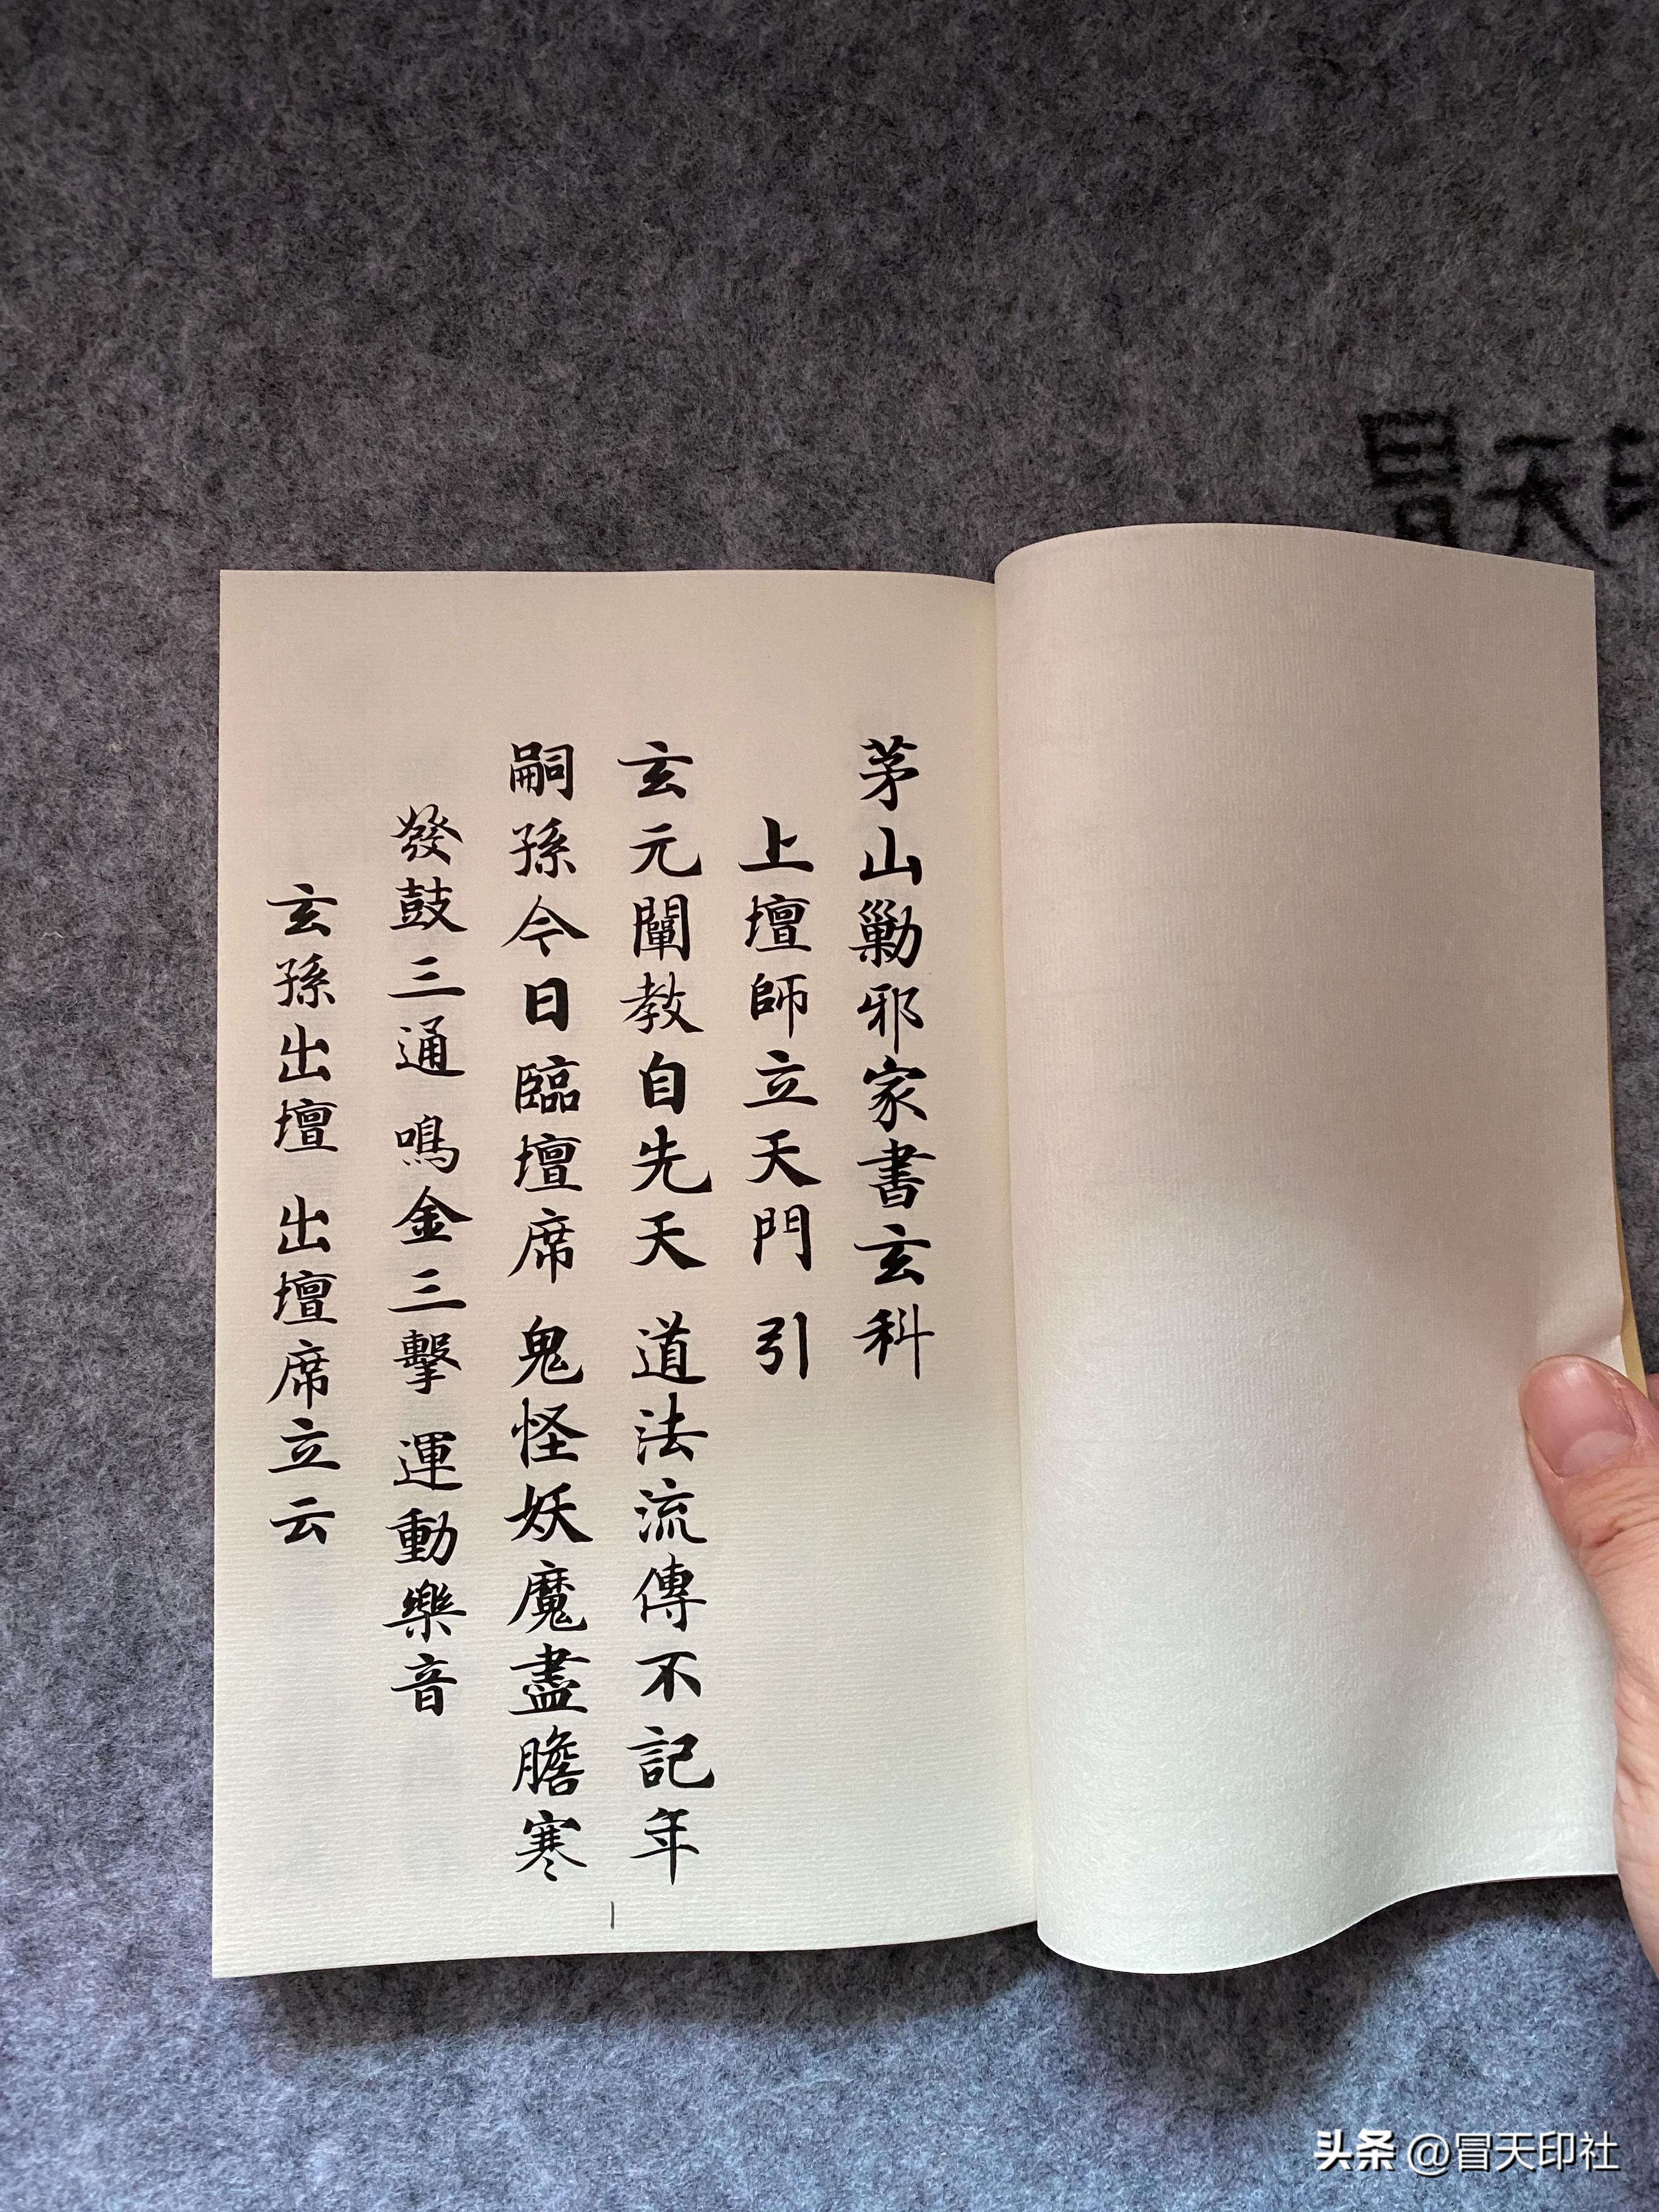 茅山勦邪家書玄科
上壇師立天門 引
玄元闡教自先天 道法流傳不記年
嗣孫今日臨壇席 鬼怪妖魔盡膽寒
發鼓三通 鳴金三擊 運動樂音
玄孫出壇 出壇席立云
1
冒天印
头条 @冒天印社